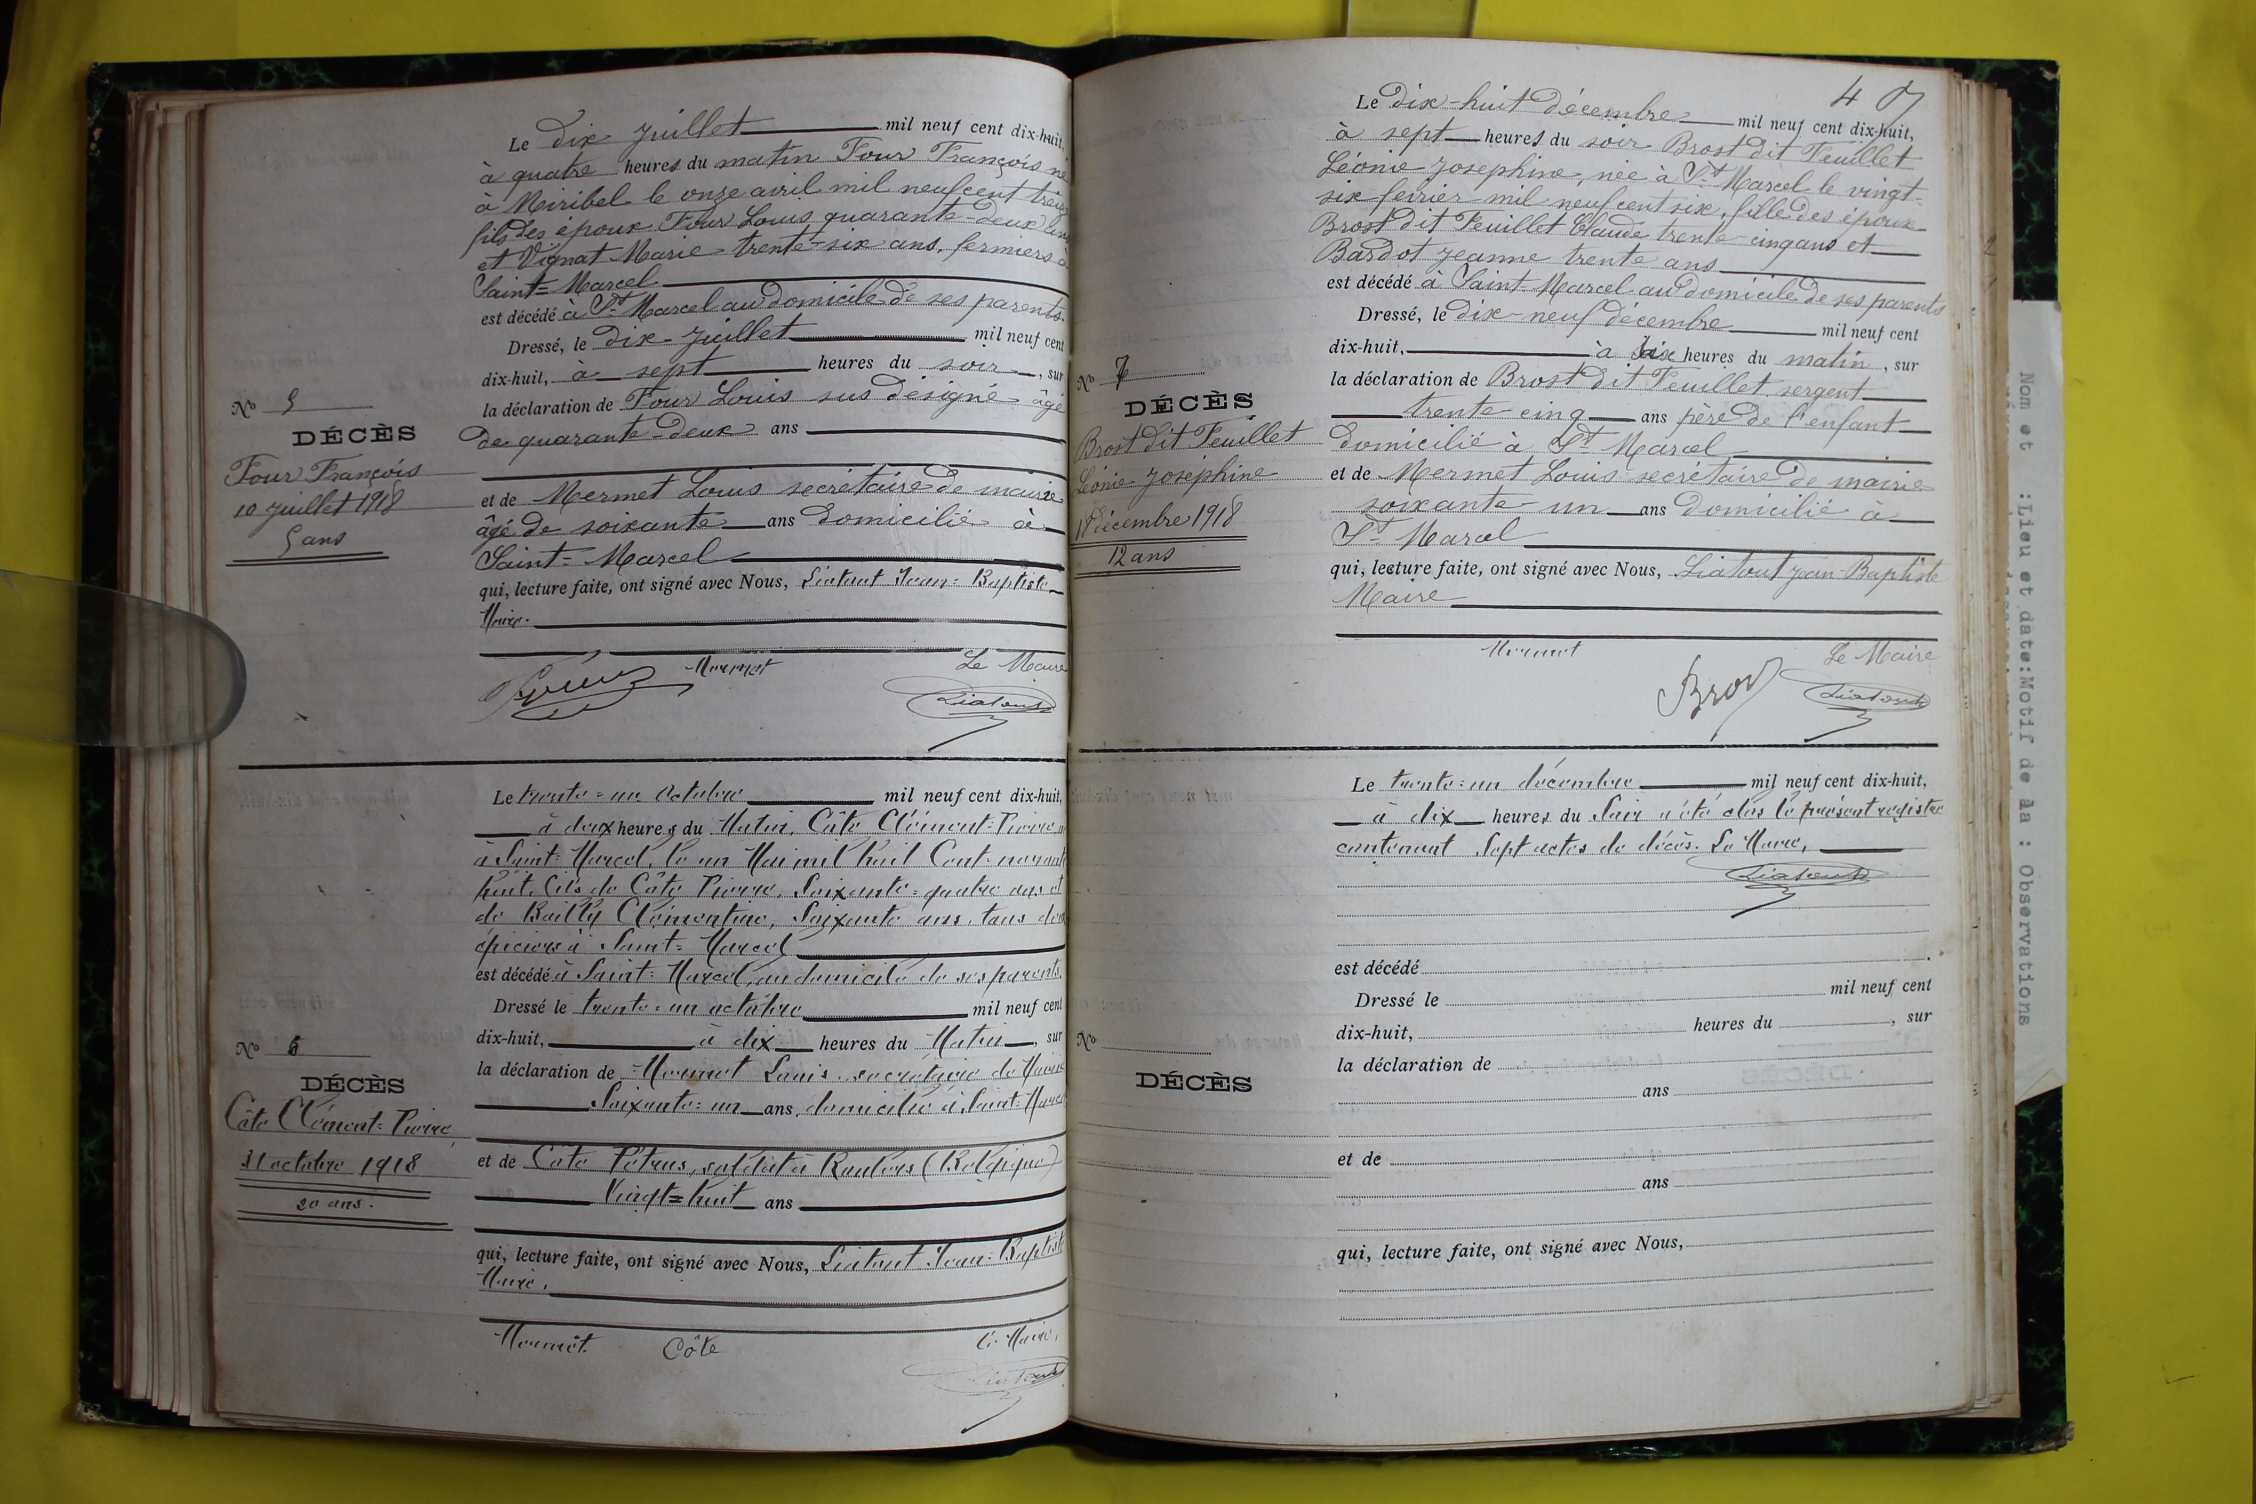 Le dix juillet mil neuf cent dix-huit,
à quatre heures du matin Four François né
à Miribel le onze avril mil neuf cent treize
fils des époux Four Louis quarante-deux ans
et Vignat Marie trente-six ans, fermiers à
Saint-Marcel
est décédé à St Marcel au domicile de ses parents.
Dressé, le dix juillet mil neuf cent
dix-huit, à sept heures du soir, sur
la déclaration de Four Louis sus désigné âgé
de quarante-deux ans
et de Mermet Louis secrétaire de mairie
âgé de soixante ans domicilié à
Saint-Marcel
qui, lecture faite, ont signé avec Nous, Liatout Jean-Baptiste
Maire.
Mermet Le Maire
Liatout
No 5
DÉCÈS
Four François
10 juillet 1918
5 ans
Le trente-un octobre mil neuf cent dix-huit,
à deux heures du Matin, Côte Clément-Pierre né
à Saint-Marcel, le un Mai mil huit Cent-nonante
huit, fils de Côte Pierre, Soixante-quatre ans et
de Bailly Clémentine, Soixante ans, tous deux
épiciers à Saint-Marcel
est décédé à Saint-Marcel, au domicile de ses parents.
Dressé le trente-un octobre mil neuf cent
dix-huit, à dix heures du Matin, sur
la déclaration de Mermet Louis secrétaire de Mairie
Soixante-un ans, domicilié à Saint-Marcel
et de Côte Pétrus, soldat à Roulers (Belgique)
Vingt-huit ans
qui, lecture faite, ont signé avec Nous, Liatout Jean-Baptiste
Maire.
Mermet Côte Le Maire,
Liatout
No 6
DÉCÈS
Côte Clément-Pierre,
31 octobre 1918
20 ans.
40
Le dix-huit décembre mil neuf cent dix-huit,
à sept heures du soir Brost dit Feuillet
Léonie Josephine, née à St Marcel le vingt-
six février mil neuf cent six, fille des époux
Brost dit Feuillet Claude trente-cinq ans et
Bardot Jeanne trente ans
est décédé à Saint Marcel au domicile de ses parents
Dressé, le dix-neuf décembre mil neuf cent
dix-huit, à heures du matin, sur
la déclaration de Brost dit Feuillet, sergent
trente cinq ans père de l'enfant
domicilié à St Marcel
et de Mermet Louis secrétaire de mairie
soixante-un ans domicilié à
St Marcel
qui, lecture faite, ont signé avec Nous, Liatout Jean-Baptiste
Maire
Mermet Brost Le Maire
Liatout
No 7
DÉCÈS
Brost dit Feuillet
Léonie Joséphine
18 décembre 1918
12 ans
Le trente-un décembre mil neuf cent dix-huit,
à dix heures du Soir a été clos le présent registre
contenant Sept actes de décès. Le Maire,
Liatout
est décédé
Dressé le mil neuf cent
dix-huit, heures du , sur
la déclaration de
ans
et de
ans
qui, lecture faite, ont signé avec Nous,
No
DÉCÈS
Nom et :Lieu et date:Motif de la : Observations